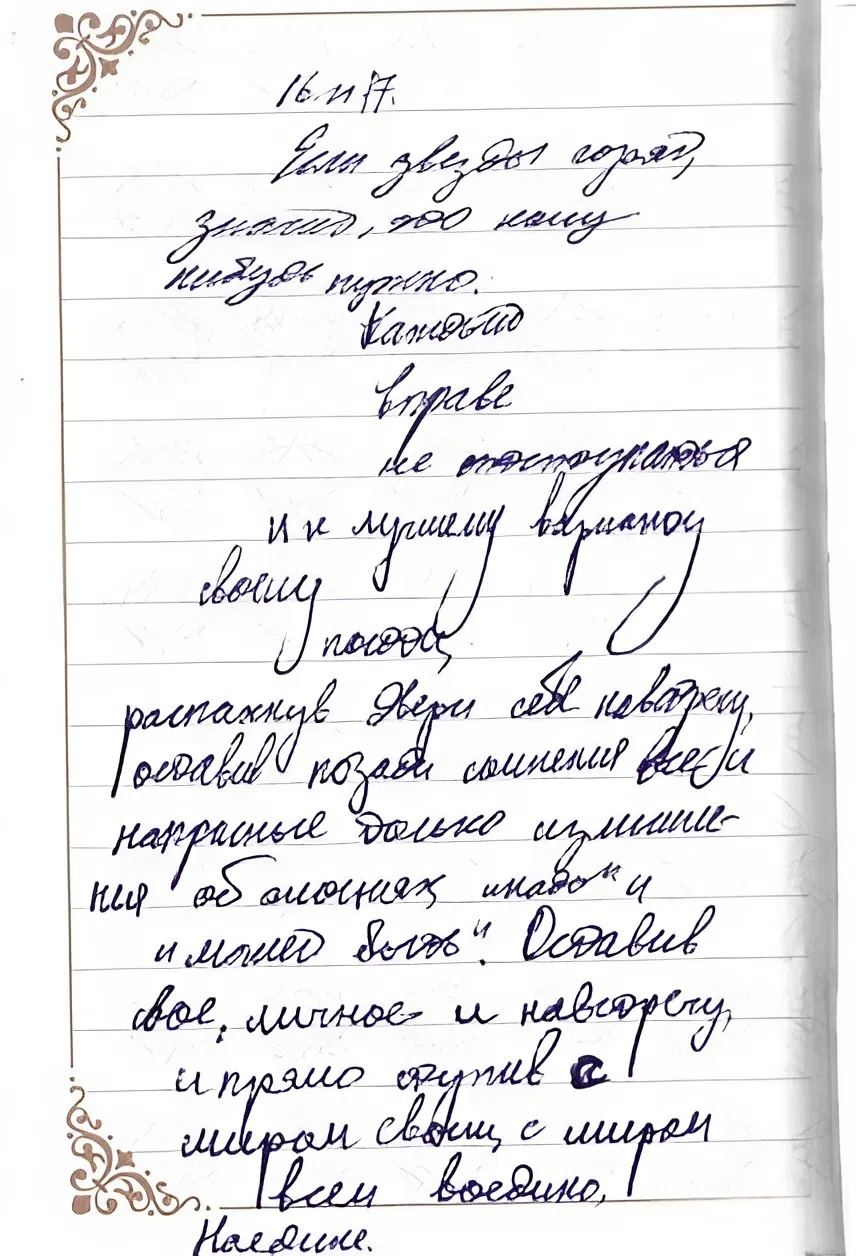 16 и 17.
Если звезды горят,
значит, это кому
нибудь нужно.
Каждый
вправе
не
и к лучшему варианту
своему
распахнув двери себе навстречу,
оставив позади сомнения все и
напрасные только
ния об "надо" и
"может быть". Оставив
свое, личное и навстречу,
и прямо
миром своим, с миром
всем воедино,
Наедине.